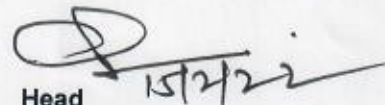 15/2/22
Head